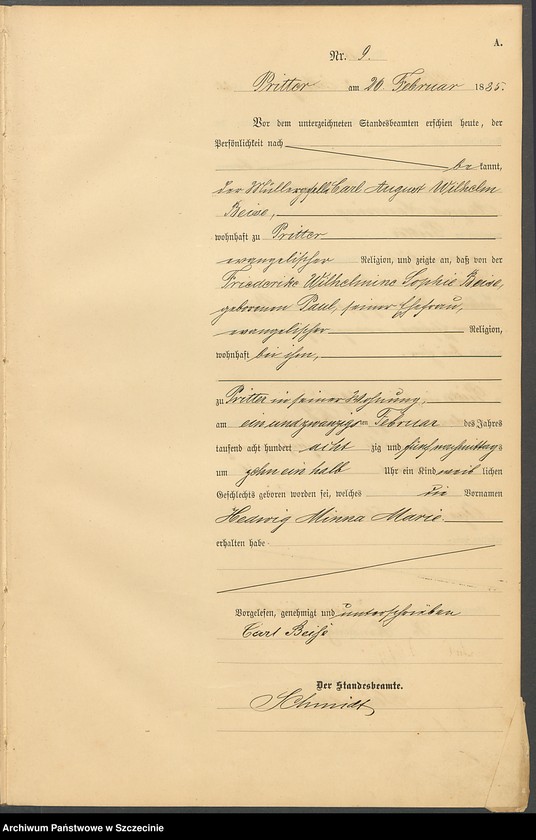 A.
Nr. 9.
Pritter am 26 Februar 1885.
Vor dem unterzeichneten Standesbeamten erschien heute, der
Persönlichkeit nach
be kannt,
der Müllergeselle Carl August Wilhelm
Beise,
wohnhaft zu Pritter
evangelischer Religion, und zeigte an, daß von der
Friederike Wilhelmine Sophie Beise,
geborenen Paul, seiner Ehefrau,
evangelischer Religion,
wohnhaft bei ihm,
zu Pritter in seiner Wohnung,
am ein und zwanzigsten Februar des Jahres
tausend acht hundert acht zig und fünf nachmittags
um zehn ein halb Uhr ein Kind weib lichen
Geschlechts geboren worden sei, welches die Vornamen
Hedwig Minna Marie
erhalten habe
Vorgelesen, genehmigt und unterschrieben
Carl Beise
Der Standesbeamte.
Schmidt
Archiwum Państwowe w Szczecinie